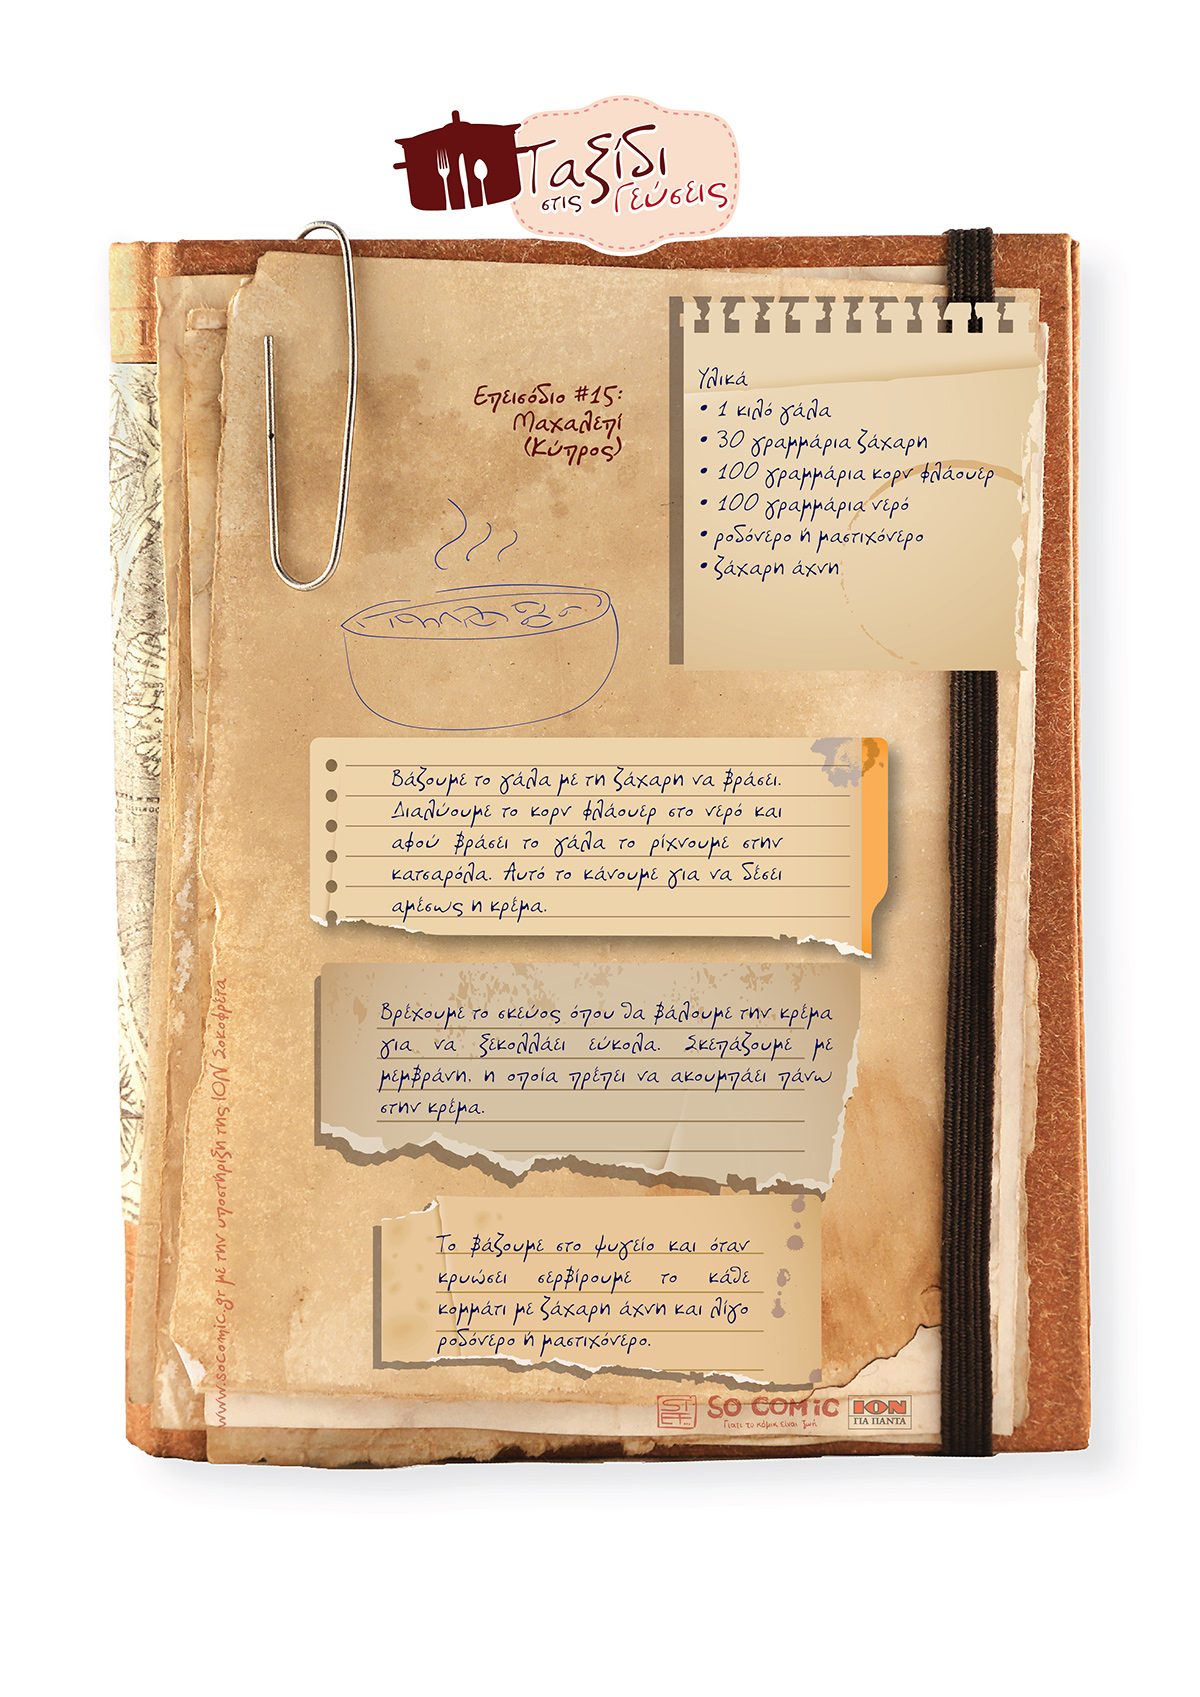 Ταξίδι
στις Γεύσεις
Επεισόδιο #15:
Μαχαλεπί
(Κύπρος)
Υλικά
• 1 κιλό γάλα
• 30 γραμμάρια ζάχαρη
• 100 γραμμάρια κορν φλάουερ
• 100 γραμμάρια νερό
• ροδόνερο ή μαστιχόνερο
• ζάχαρη άχνη
Βάζουμε το γάλα με τη ζάχαρη να βράσει.
Διαλύουμε το κορν φλάουερ στο νερό και
αφού βράσει το γάλα το ρίχνουμε στην
κατσαρόλα. Αυτό το κάνουμε για να δέσει
αμέσως η κρέμα.
Βρέχουμε το σκεύος όπου θα βάλουμε την κρέμα
για να ξεκολλάει εύκολα. Σκεπάζουμε με
μεμβράνη, η οποία πρέπει να ακουμπάει πάνω
στην κρέμα.
Το βάζουμε στο ψυγείο και όταν
κρυώσει σερβίρουμε το κάθε
κομμάτι με ζάχαρη άχνη και λίγο
ροδόνερο ή μαστιχόνερο.
www.socomic.gr με την υποστήριξη της ΙΟΝ Σοκοφρέτα
SO COMIC
Γιατί το κόμικ είναι ζωή
ΙΟΝ
ΓΙΑ ΠΑΝΤΑ